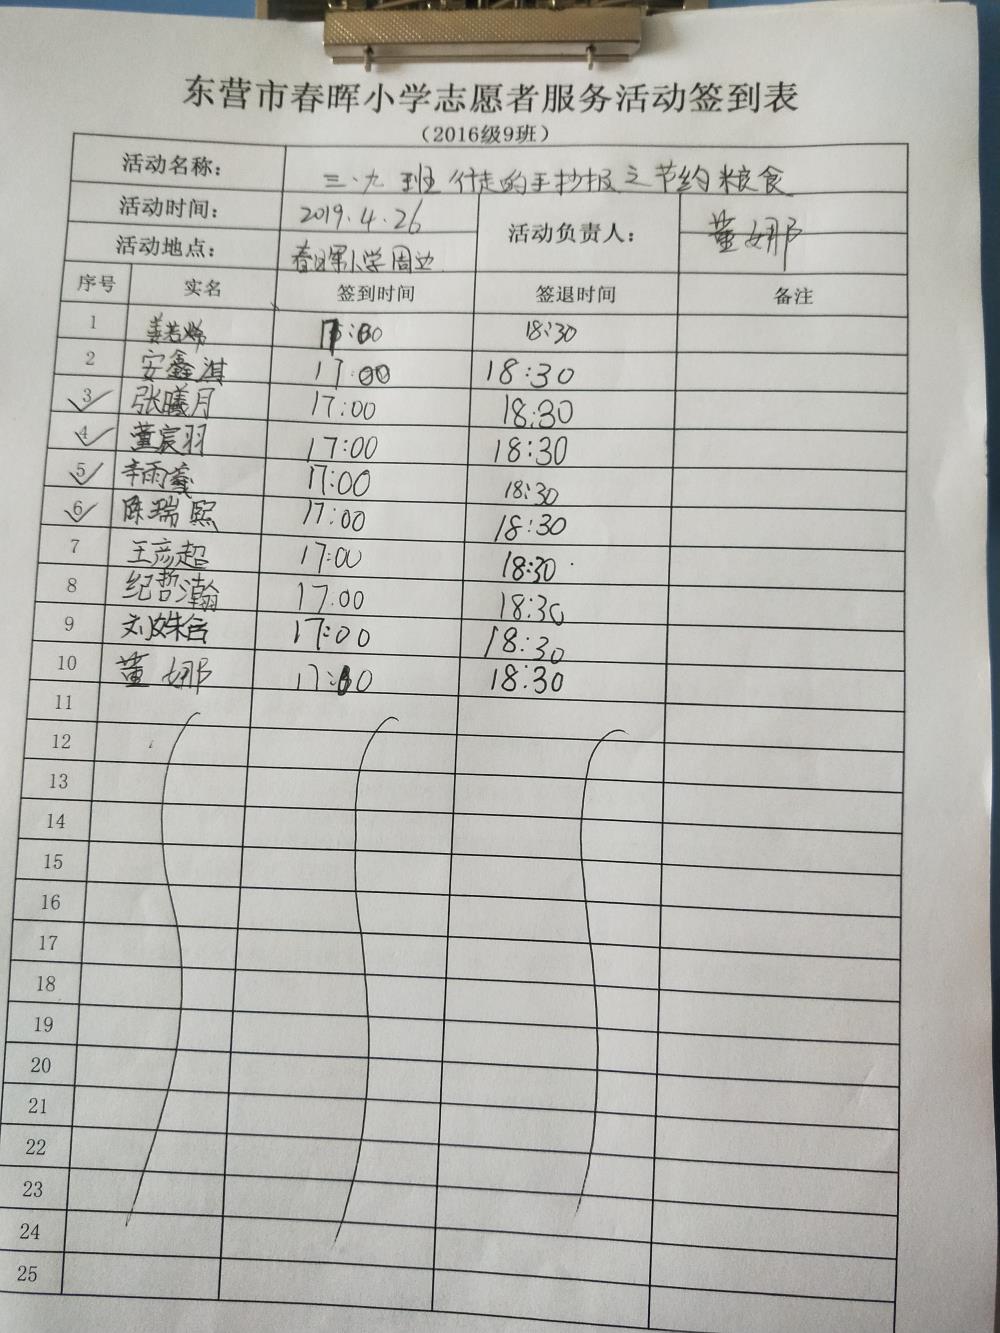 东营市春晖小学志愿者服务活动签到表
（2016级9班）
活动名称： 三.九 班 行走的手抄报之节约粮食
活动时间： 2019.4.26 活动负责人： 董娜
活动地点： 春晖小学周边
序号 实名 签到时间 签退时间 备注
1 姜若 18:30
2 安鑫淇 17:00 18:30
3 张曦月 17:00 18:30
4 董宸羽 17:00 18:30
5 李雨 17:00 18:30
6 陈瑞熙 17:00 18:30
7 王彦超 17:00 18:30
8 纪哲瀚 17:00 18:30
9 刘姝含 17:00 18:30
10 董娜 18:30
11
12
13
14
15
16
17
18
19
20
21
22
23
24
25